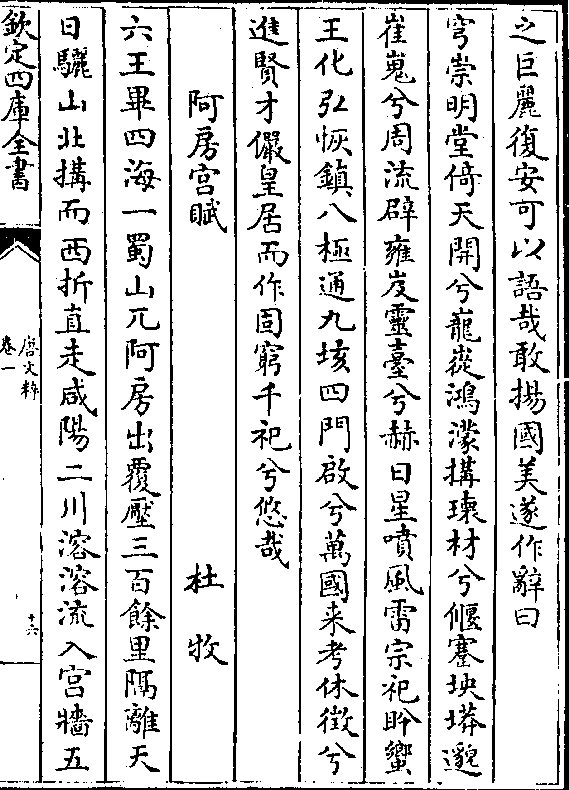 之巨麗復安可以語哉敢揚國美遂作辭曰
穹崇明堂倚天開兮巃嵸鴻濛搆瓌材兮偃蹇坱圠邈
崔嵬兮周流辟雍岌靈臺兮赫日星噴風雷宗祀肸蠁
王化弘恢鎮八極通九垓四門啟兮萬國来考休徵兮
進賢才儼皇居而作固窮千祀兮悠哉
阿房宮賦 杜牧
六王畢四海一蜀山兀阿房出覆壓三百餘里隔離天
日驪山北搆而西折直走咸陽二川溶溶流入宮牆五
欽定四庫全書
唐文粹
卷一
十六